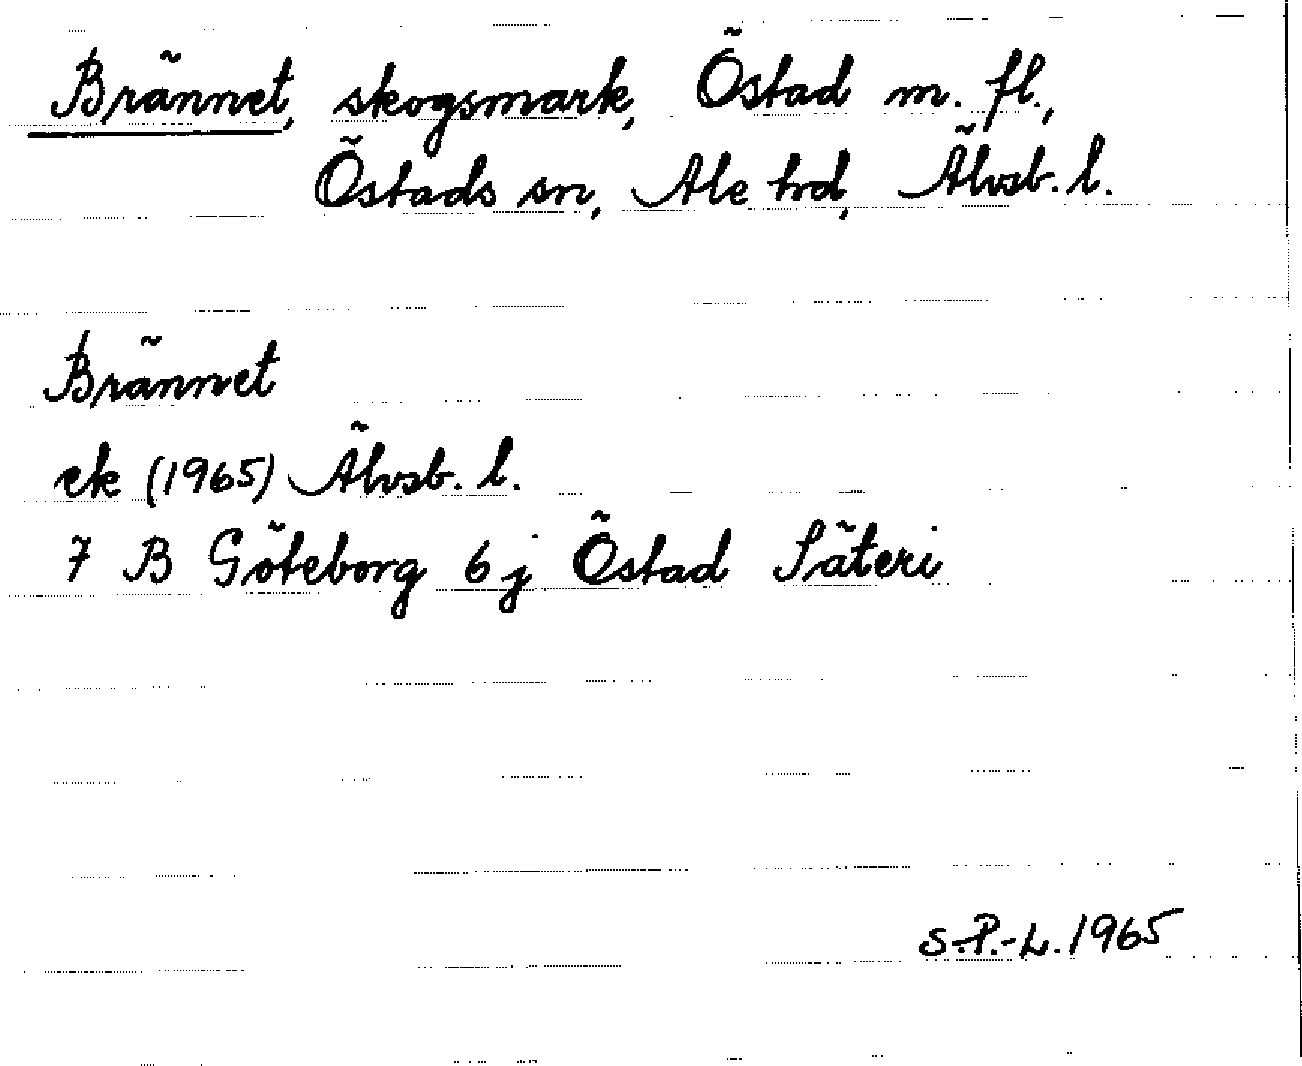 Brännet, skogsmark, Östad m. fl.,
Östads sn, Ale hd, Älvsb. l.
Brännet
ek (1965) Älvsb. l.
7 B Göteborg 6 j Östad Säteri
S.-P.-L. 1965